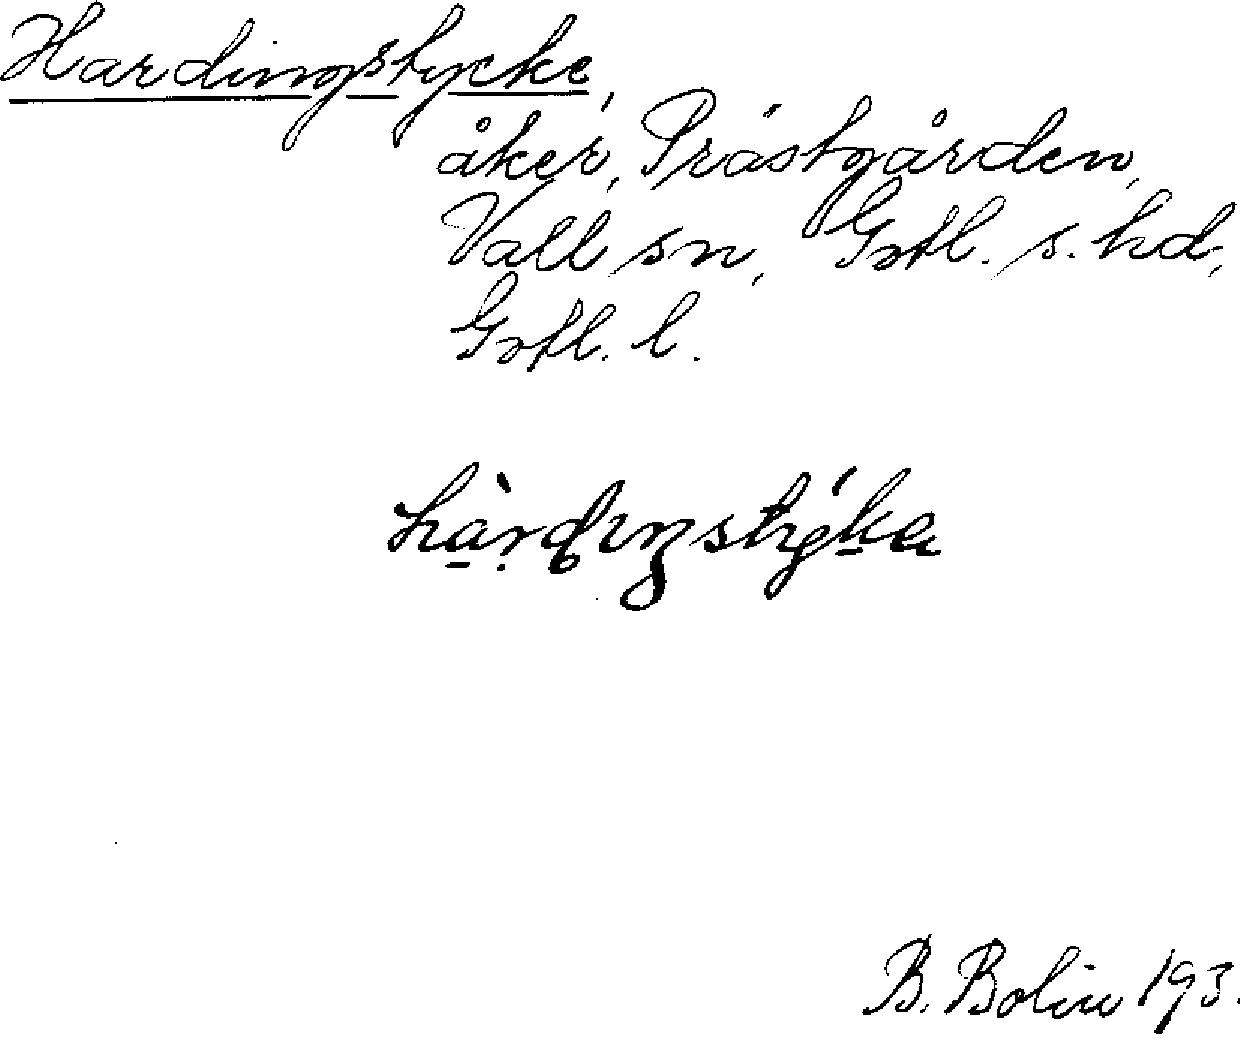 Hardingstycke,
åker, Prästgården,
Vall sn, Gotl. s. hd,
Gotl. l.
B. Bolin 193.